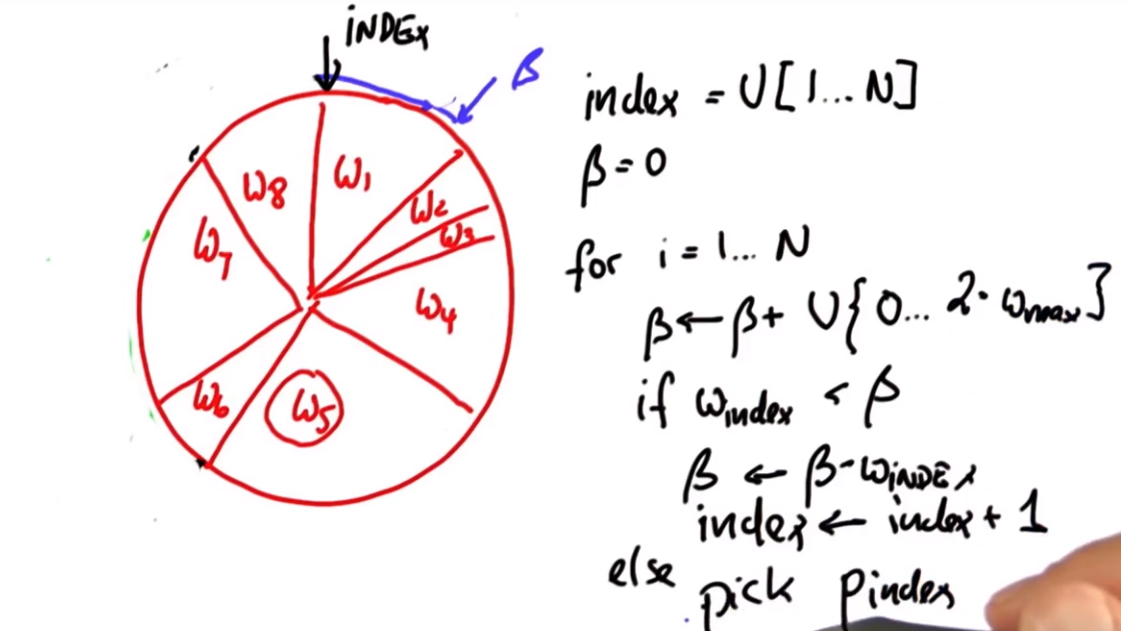 INDEX
β
ω1
ω2
ω3
ω4
ω5
ω6
ω7
ω8
index = U[1...N]
β = 0
for i = 1... N
β ← β + U{0... 2·ωmax}
if ωindex < β
β ← β - ωINDEX
index ← index + 1
else
pick Pindex